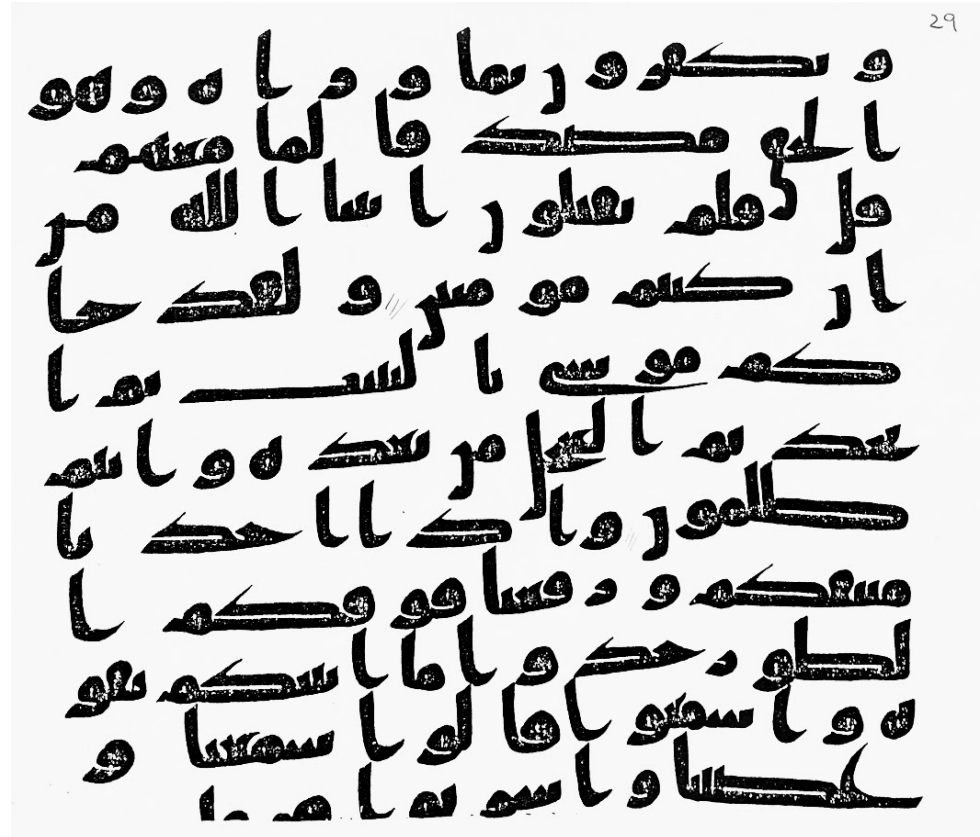 29
و يكفرون بما وراه وهو
الحق مصدقا لما معهم
قل فلم تقتلون انبيا الله من
ان كنتم مومنين ولقد جا
كم موسى بالبينت ثم ا
تخذتم العجل من بعده وانتم
ظلمون واذ اخذنا
ميثقكم ورفعنا فوقكم ا
لطور خذوا ما اتينكم بقو
ه واسمعوا قالوا سمعنا و
عصينا واشربوا